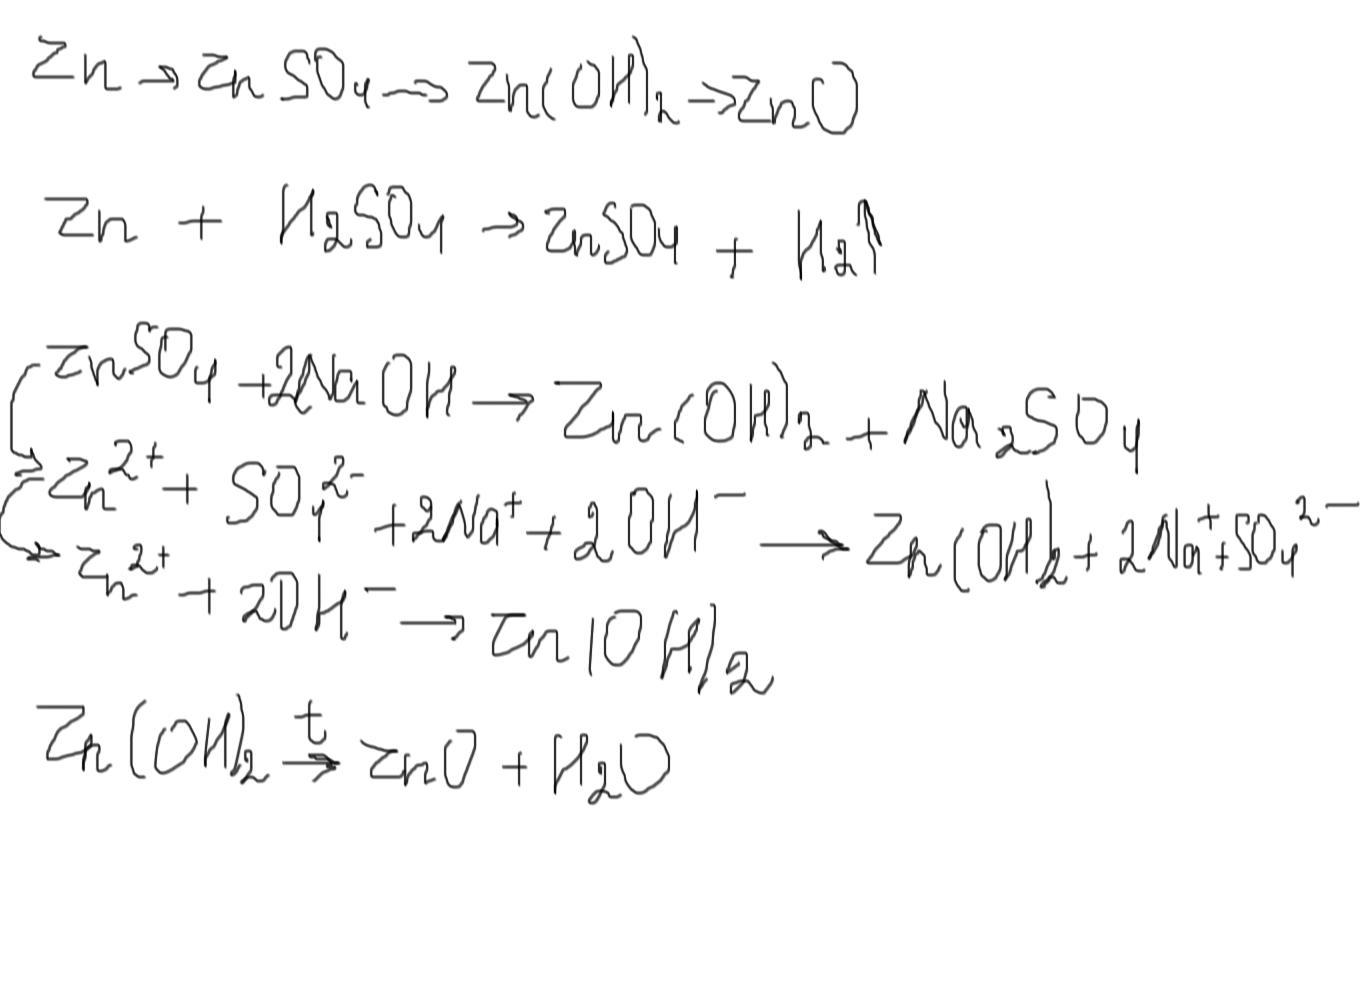 Zn → ZnSO₄ → Zn(OH)₂ → ZnO
Zn + H₂SO₄ → ZnSO₄ + H₂↑
ZnSO₄ + 2NaOH → Zn(OH)₂ + Na₂SO₄
Zn²⁺ + SO₄²⁻ + 2Na⁺ + 2OH⁻ → Zn(OH)₂ + 2Na⁺ + SO₄²⁻
Zn²⁺ + 2OH⁻ → Zn(OH)₂
Zn(OH)₂ →ᵗ ZnO + H₂O